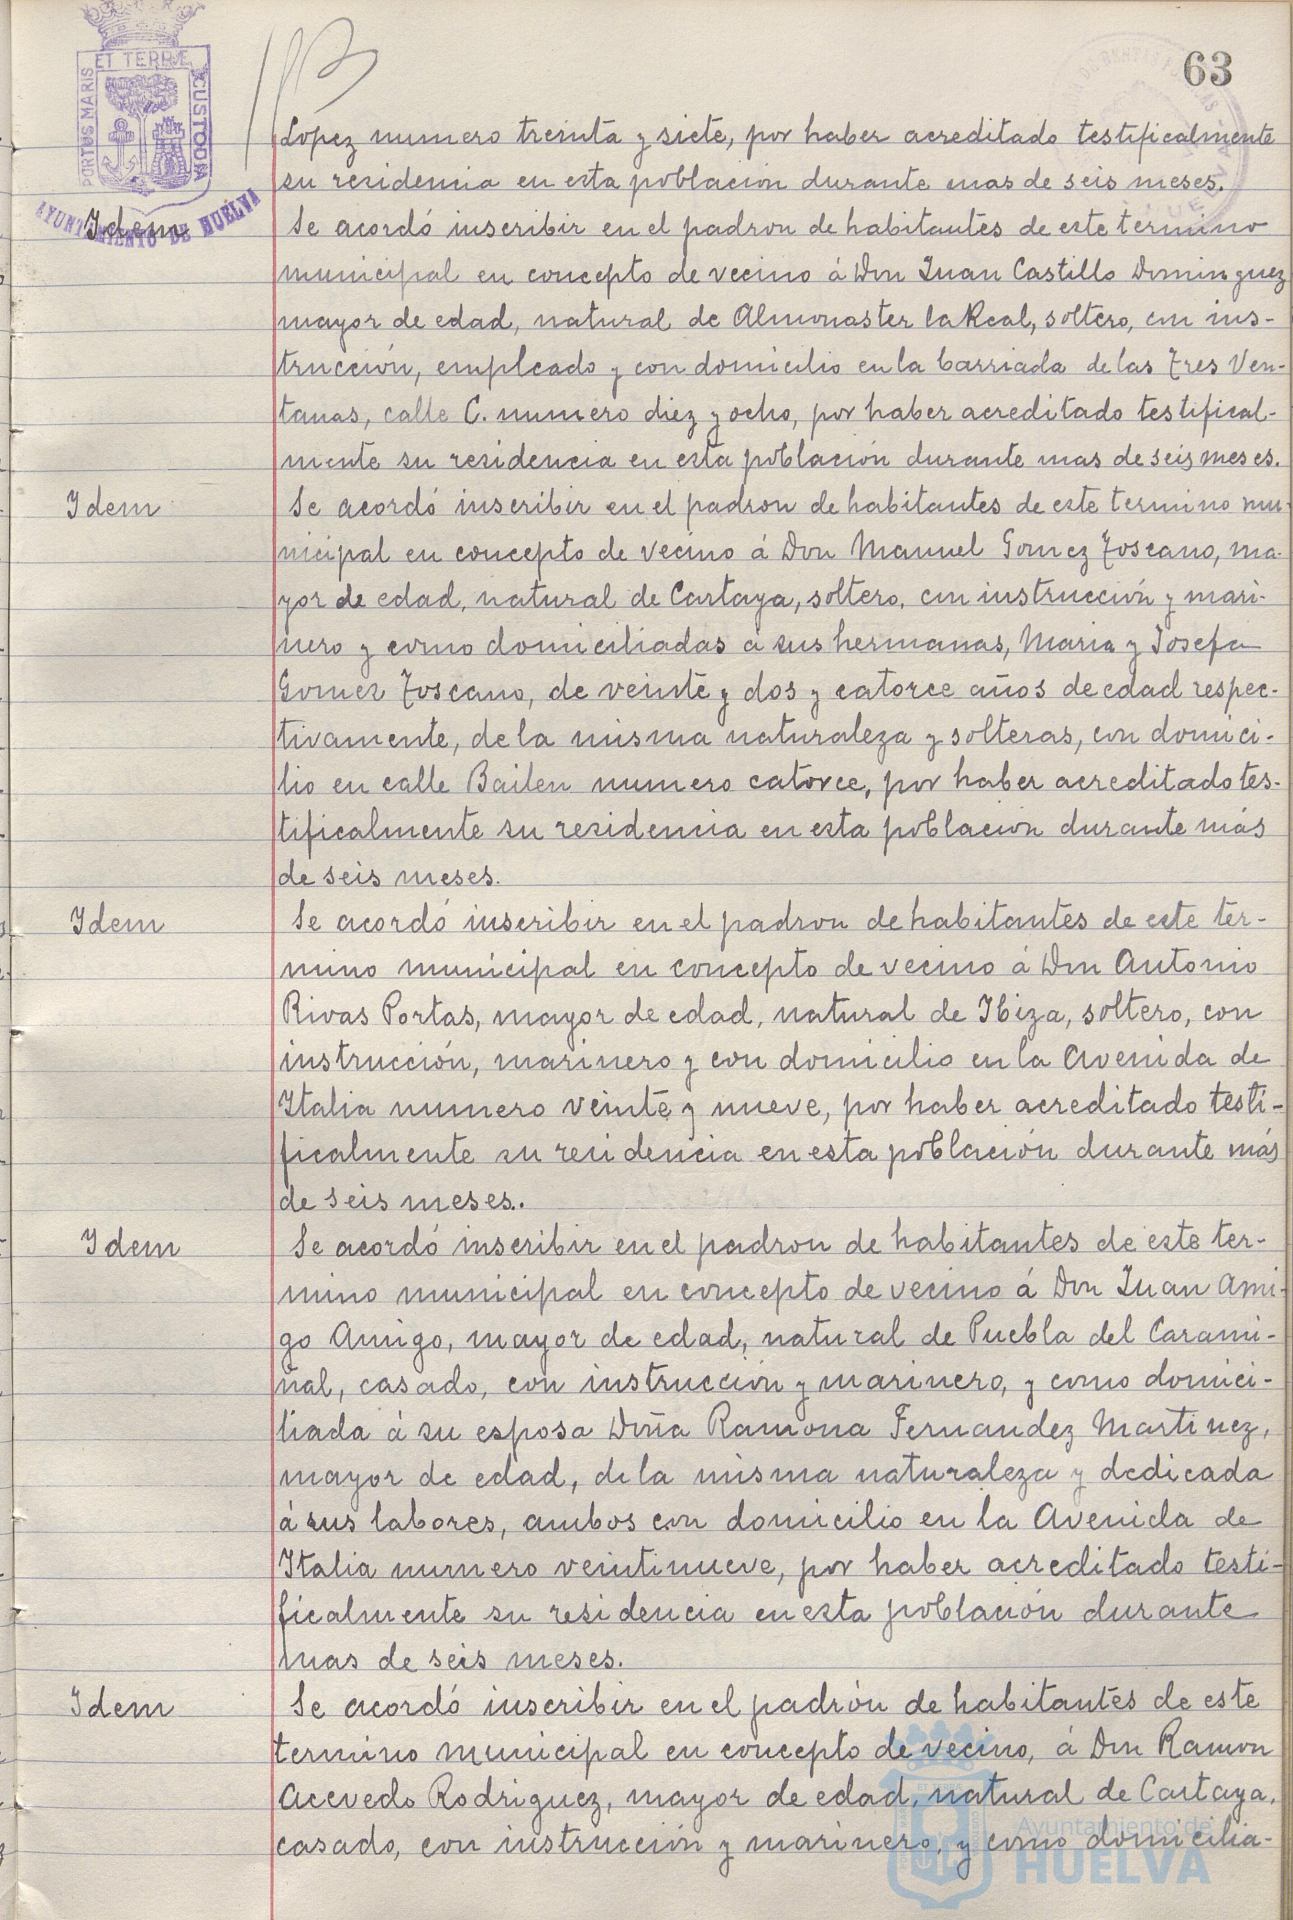 63
ET TERRÆ
PORTUS MARIS
CUSTODIA
AYUNTAMIENTO DE HUELVA
Lopez numero treinta y siete, por haber acreditado testificalmente
su residencia en esta población durante mas de seis meses.
Idem
Se acordó inscribir en el padron de habitantes de este termino
municipal en concepto de vecino á Don Juan Castillo Dominguez
mayor de edad, natural de Almonaster la Real, soltero, con ins-
trucción, empleado y con domicilio en la barriada de las Tres Ven-
tanas, calle C. numero diez y ocho, por haber acreditado testifical-
mente su residencia en esta población durante mas de seis meses.
Idem
Se acordó inscribir en el padron de habitantes de este termino mu-
nicipal en concepto de vecino á Don Manuel Gomez Toscano, ma-
yor de edad, natural de Cartaya, soltero, con instrucción y mari-
nero y como domiciliadas a sus hermanas, Maria y Josefa
Gomez Toscano, de veinte y dos y catorce años de edad respec-
tivamente, de la misma naturaleza y solteras, con domici-
lio en calle Bailen numero catorce, por haber acreditado tes-
tificalmente su residencia en esta poblacion durante más
de seis meses.
Idem
Se acordó inscribir en el padron de habitantes de este ter-
mino municipal en concepto de vecino á Don Antonio
Rivas Portas, mayor de edad, natural de Ibiza, soltero, con
instrucción, marinero y con domicilio en la Avenida de
Italia numero veinte y nueve, por haber acreditado testi-
ficalmente su residencia en esta población durante más
de seis meses.
Idem
Se acordó inscribir en el padron de habitantes de este ter-
mino municipal en concepto de vecino á Don Juan Ami-
go Amigo, mayor de edad, natural de Puebla del Carami-
ñal, casado, con instrucción y marinero, y como domici-
liada á su esposa Doña Ramona Fernandez Martinez,
mayor de edad, de la misma naturaleza y dedicada
á sus labores, ambos con domicilio en la Avenida de
Italia numero veintinueve, por haber acreditado testi-
ficalmente su residencia en esta población durante
mas de seis meses.
Idem
Se acordó inscribir en el padrón de habitantes de este
termino municipal en concepto de vecino, á Don Ramon
Acevedo Rodriguez, mayor de edad, natural de Cartaya,
casado, con instrucción y marinero, y como domicilia-
Ayuntamiento de
HUELVA